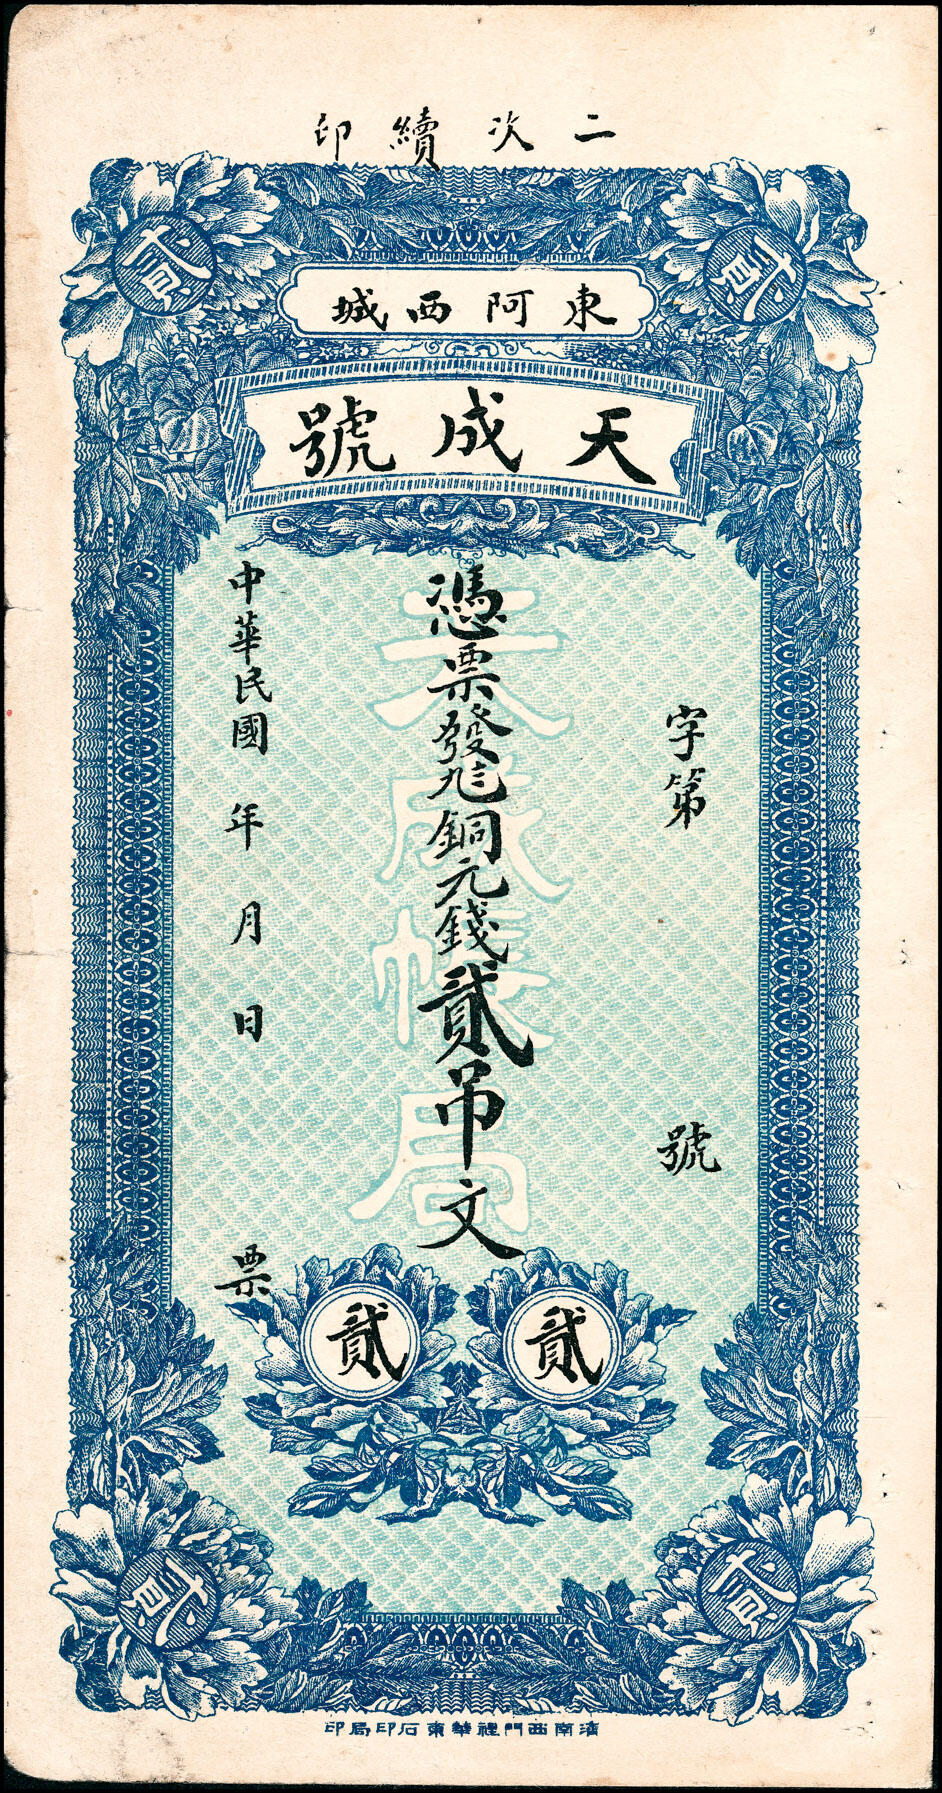 二次續印
貳 貳
東阿西城
天成號
字第 號
憑票發 銅元錢貳吊文
天成帳局
中華民國 年 月 日 票
貳 貳
貳 貳
濟南西門裡華東石印局印